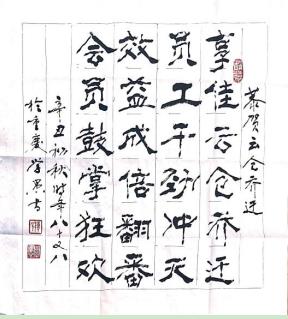 恭贺云仓乔迁
享佳云仓乔迁
员工干劲冲天
效益成倍翻番
会员鼓掌狂欢
辛丑初秋时年八十又八
於重慶学书